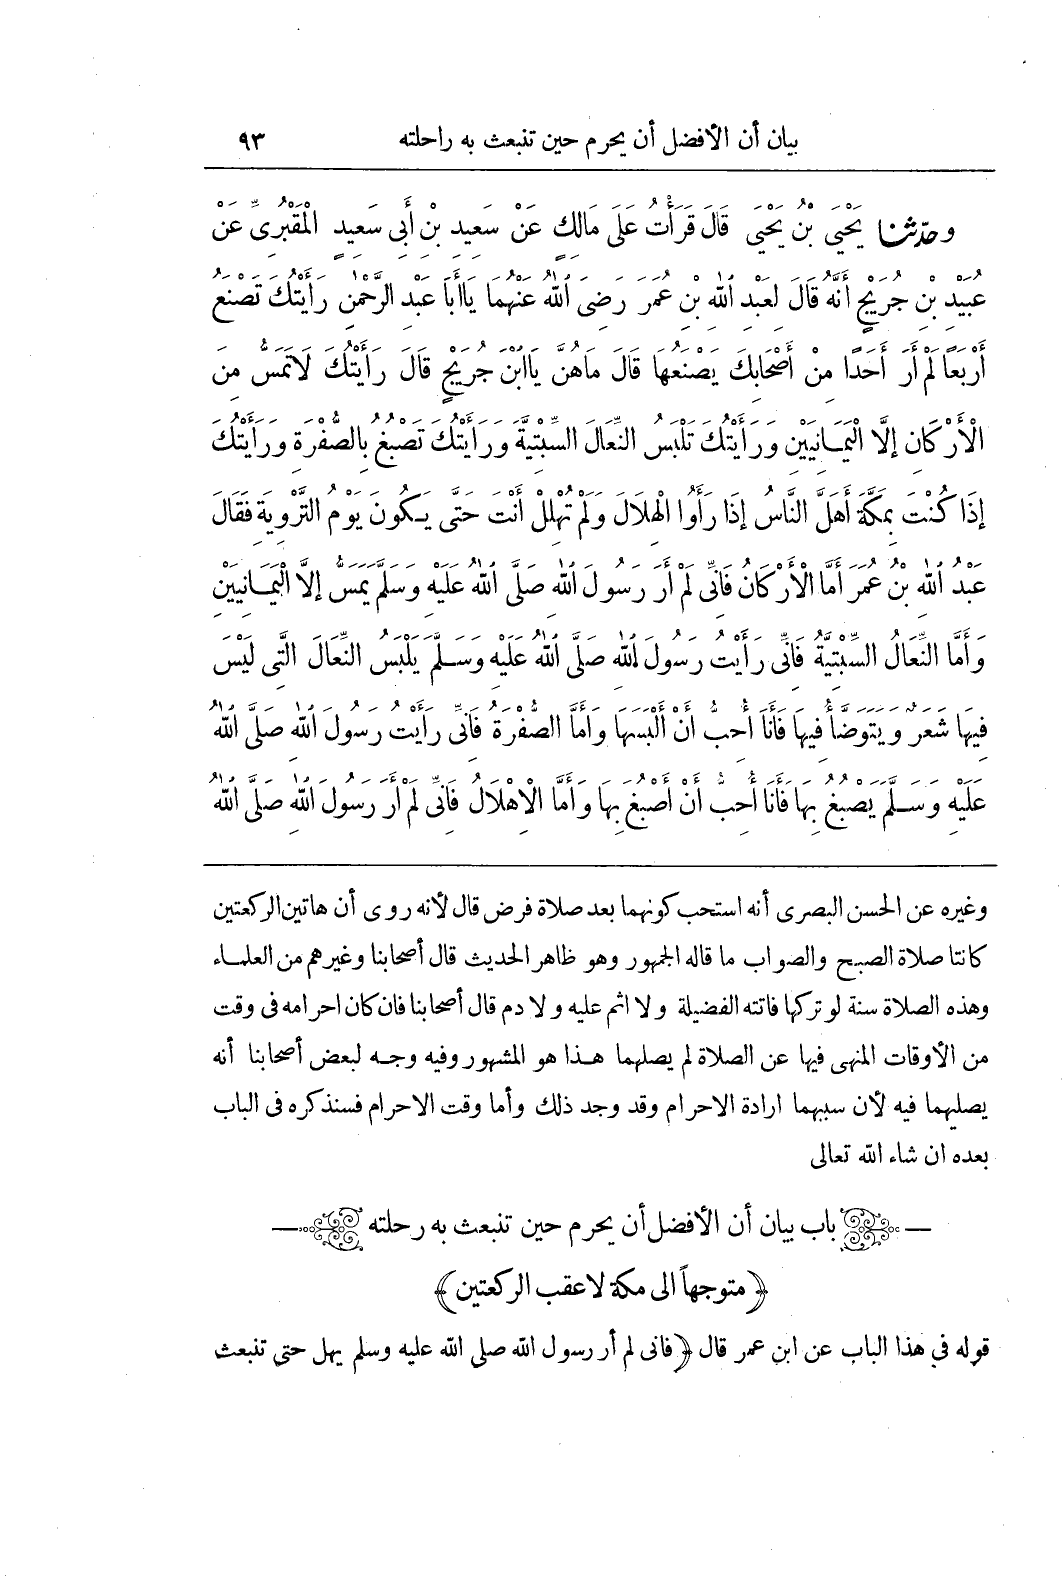 بيان أن الأفضل أن يحرم حين تنبعث به راحلته ٩٣
وحدّثنا يَحْيَى بْنُ يَحْيَى قَالَ قَرَأْتُ عَلَى مَالِكٍ عَنْ سَعِيدِ بْنِ أَبِى سَعِيدٍ الْمَقْبُرِىِّ عَنْ
عُبَيْدِ بْنِ جُرَيْجٍ أَنَّهُ قَالَ لِعَبْدِ اللهِ بْنِ عُمَرَ رَضِىَ اللهُ عَنْهُمَا يَاأَبَا عَبْدِ الرَّحْمٰنِ رَأَيْتُكَ تَصْنَعُ
أَرْبَعًا لَمْ أَرَ أَحَدًا مِنْ أَصْحَابِكَ يَصْنَعُهَا قَالَ مَاهُنَّ يَاابْنَ جُرَيْجٍ قَالَ رَأَيْتُكَ لَاتَمَسُّ مِنَ
الْأَرْكَانِ إِلَّا الْيَمَانِيَيْنِ وَرَأَيْتُكَ تَلْبَسُ النِّعَالَ السِّبْتِيَّةَ وَرَأَيْتُكَ تَصْبُغُ بِالصُّفْرَةِ وَرَأَيْتُكَ
إِذَا كُنْتَ بِمَكَّةَ أَهَلَّ النَّاسُ إِذَا رَأَوُا الْهِلَالَ وَلَمْ تُهْلِلْ أَنْتَ حَتَّى يَكُونَ يَوْمُ التَّرْوِيَةِ فَقَالَ
عَبْدُ اللهِ بْنُ عُمَرَ أَمَّا الْأَرْكَانُ فَانِّى لَمْ أَرَ رَسُولَ اللهِ صَلَّى اللهُ عَلَيْهِ وَسَلَّمَ يَمَسُّ إِلَّا الْيَمَانِيَيْنِ
وَأَمَّا النِّعَالُ السِّبْتِيَّةُ فَانِّى رَأَيْتُ رَسُولَ اللهِ صَلَّى اللهُ عَلَيْهِ وَسَلَّمَ يَلْبَسُ النِّعَالَ الَّتِى لَيْسَ
فِيهَا شَعَرٌ وَيَتَوَضَّأُ فِيهَا فَأَنَا أُحِبُّ أَنْ أَلْبَسَهَا وَأَمَّا الصُّفْرَةُ فَانِّى رَأَيْتُ رَسُولَ اللهِ صَلَّى اللهُ
عَلَيْهِ وَسَلَّمَ يَصْبُغُ بِهَا فَأَنَا أُحِبُّ أَنْ أَصْبُغَ بِهَا وَأَمَّا الْاهْلَالُ فَانِّى لَمْ أَرَ رَسُولَ اللهِ صَلَّى اللهُ
وغيره عن الحسن البصرى أنه استحب كونهما بعد صلاة فرض قال لأنه روى أن هاتين الركعتين
كانتا صلاة الصبح والصواب ما قاله الجمهور وهو ظاهر الحديث قال أصحابنا وغيرهم من العلماء
وهذه الصلاة سنة لو تركها فاتته الفضيلة ولا اثم عليه ولا دم قال أصحابنا فان كان احرامه فى وقت
من الأوقات المنهى فيها عن الصلاة لم يصلهما هذا هو المشهور وفيه وجه لبعض أصحابنا أنه
يصليهما فيه لأن سببهما ارادة الاحرام وقد وجد ذلك وأما وقت الاحرام فسنذكره فى الباب
بعده ان شاء الله تعالى
باب بيان أن الأفضل أن يحرم حين تنبعث به رحلته
﴿متوجهاً الى مكة لا عقب الركعتين﴾
قوله فى هذا الباب عن ابن عمر قال ﴿فانى لم أر رسول الله صلى الله عليه وسلم يهل حتى تنبعث